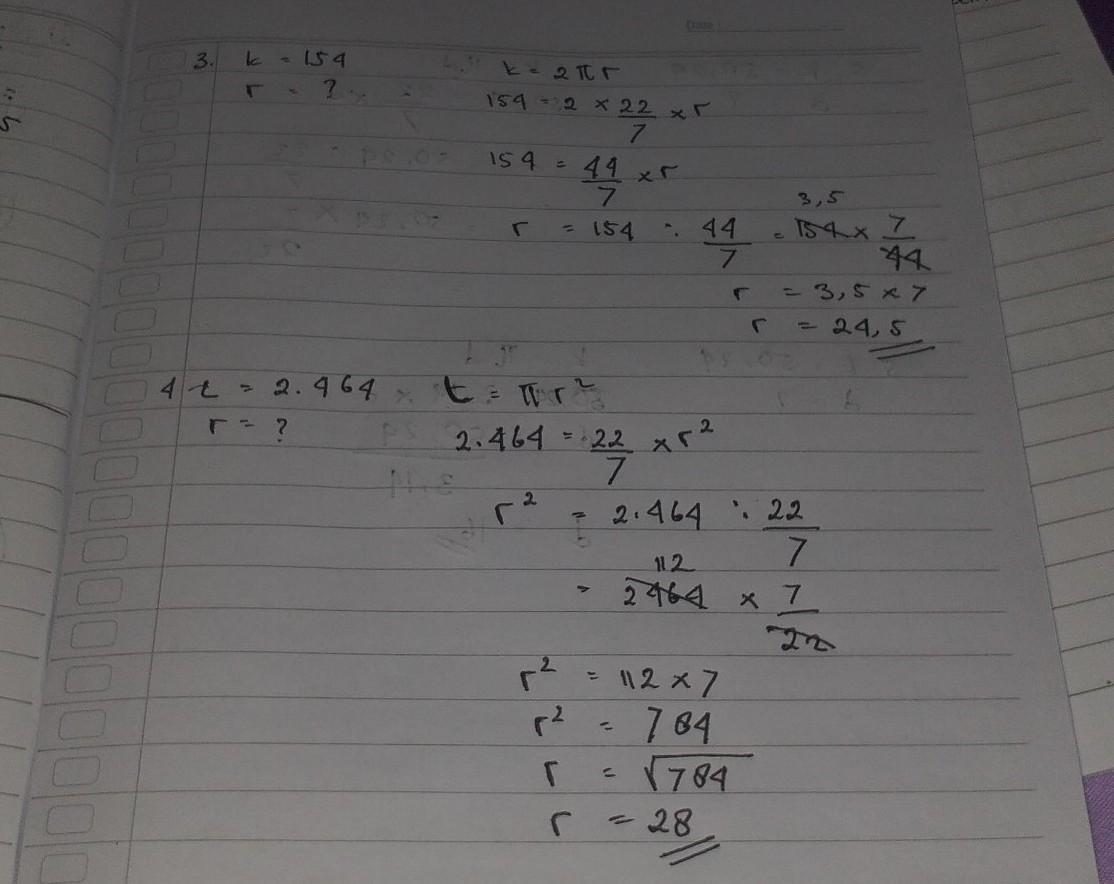 3. k = 154 k = 2 π r
r = ? 154 = 2 × 22/7 × r
154 = 44/7 × r
3,5
r = 154 : 44/7 = 154 × 7/44
r = 3,5 × 7
r = 24,5
4 L = 2.464 L = π r²
r = ? 2.464 = 22/7 × r²
r² = 2.464 : 22/7
112
= 2464 × 7/22
r² = 112 × 7
r² = 784
r = √784
r = 28